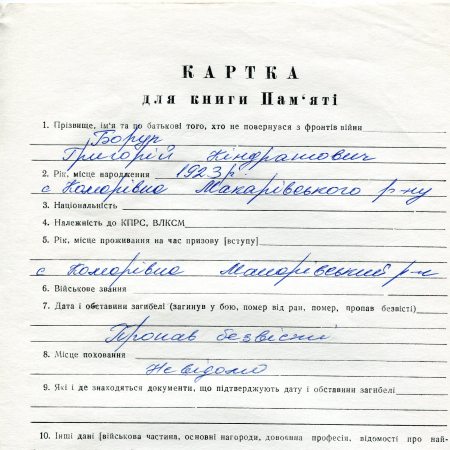 КАРТКА
для книги Пам'яті
1. Прізвище, ім'я та по батькові того, хто не повернувся з фронтів війни
Борук
Григорій Кіндратович
2. Рік, місце народження 1923 р.
с Комарівка Макарівського р-ну
3. Національність
4. Належність до КПРС, ВЛКСМ
5. Рік, місце проживання на час призову [вступу]
с Комарівка Макарівський р-н
6. Військове звання
7. Дата і обставини загибелі (загинув у бою, помер від ран, помер, пропав безвісті)
Пропав безвісті
8. Місце поховання
Невідомо
9. Які і де знаходяться документи, що підтверджують дату і обставини загибелі
10. Інші дані [військова частина, основні нагороди, довоєнна професія, відомості про най-